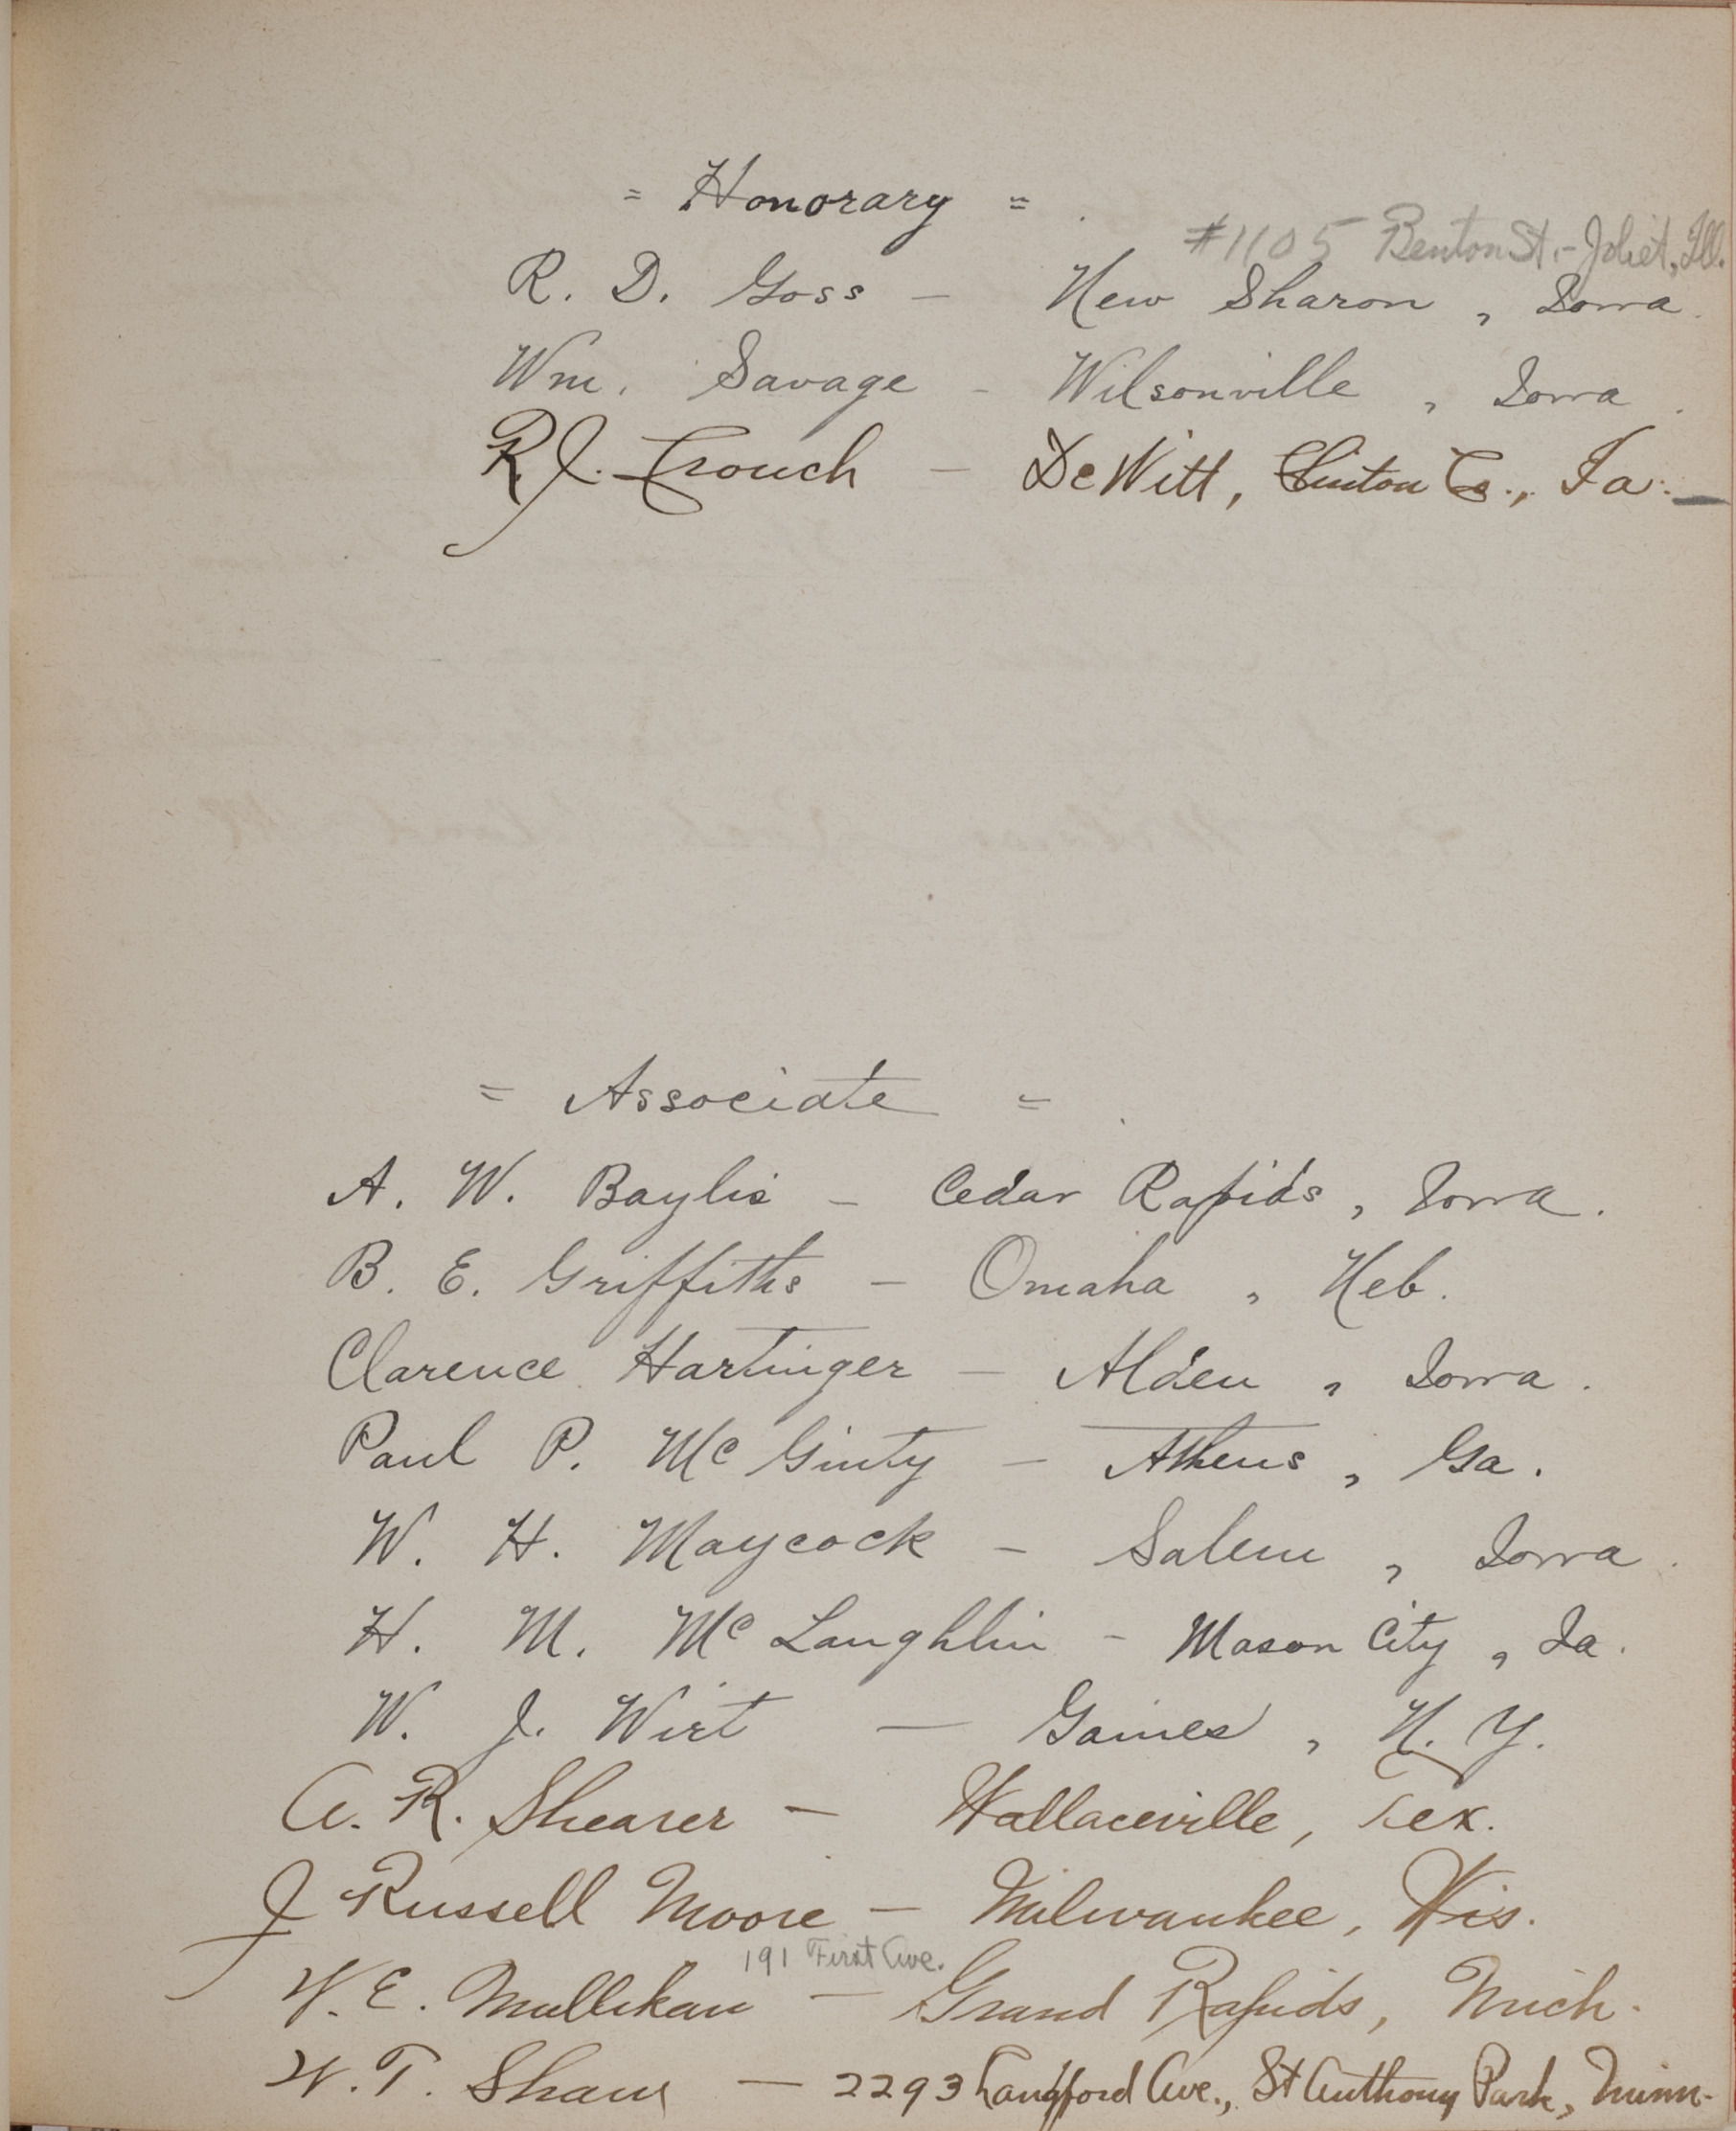 = Honorary =
#1105 Benton St. - Joliet, Ill.
R. D. Goss - New Sharon, Iowa.
Wm. Savage - Wilsonville, Iowa.
R. J. Crouch - De Witt, Clinton Co., Ia. -
= Associate =
A. W. Baylis - Cedar Rapids, Iowa.
B. E. Griffiths - Omaha, Neb.
Clarence Hartinger - Alden, Iowa.
Paul P. McGinty - Athens, Ga.
W. H. Maycock - Salem, Iowa.
H. M. McLaughlin - Mason City, Ia.
W. J. Wirt - Gaines, N. Y.
A. R. Shearer - Wallaceville, Tex.
J Russell Moore - Milwaukee, Wis.
191 First Ave.
W. E. Mullikan - Grand Rapids, Mich.
W. T. Shaw - 2293 Langford Ave., St Anthony Park, Minn.